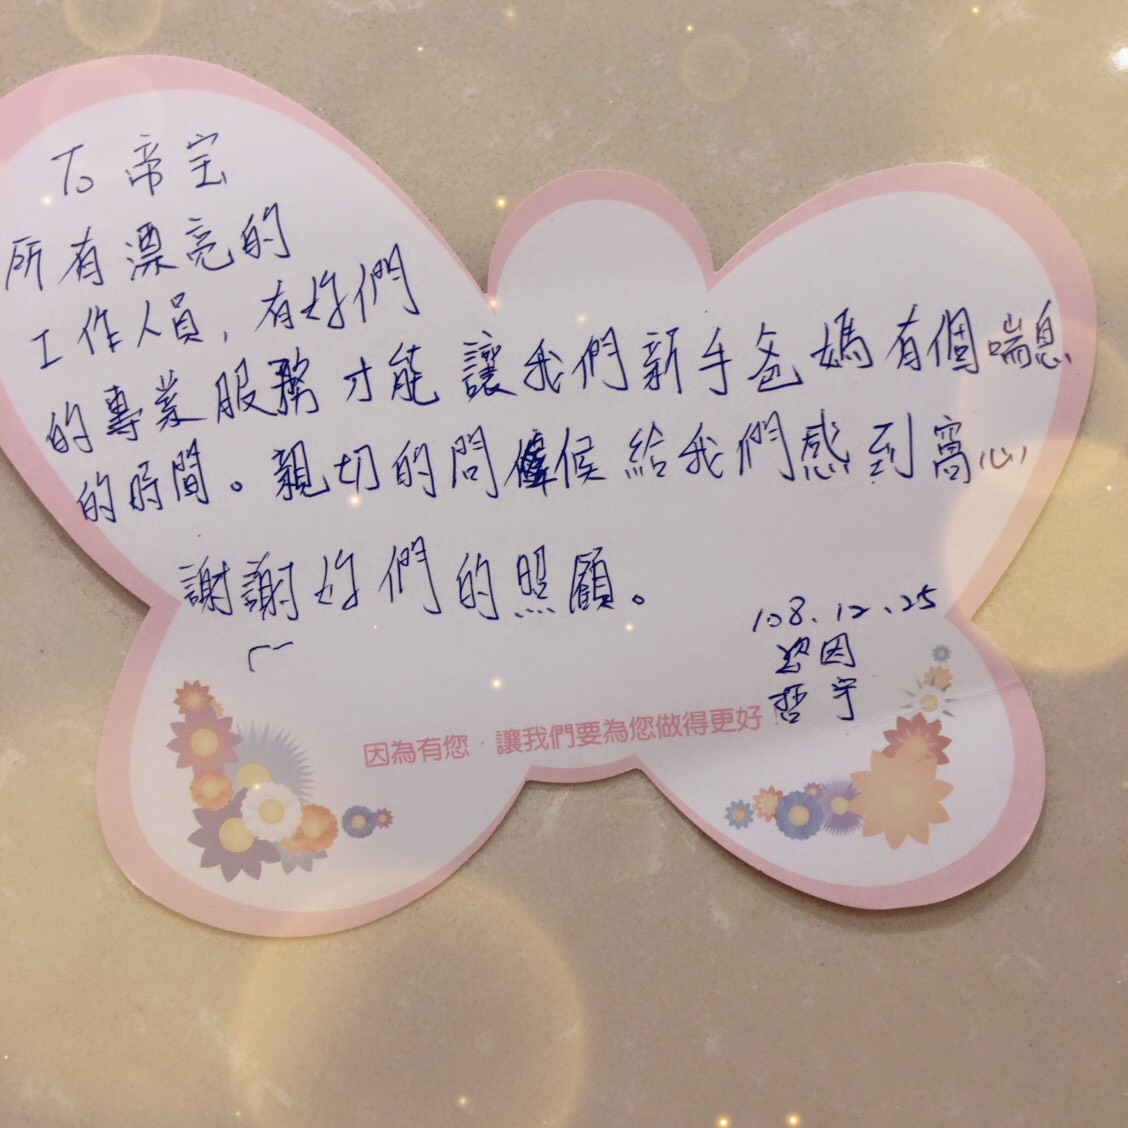 To 帝宝
所有漂亮的
工作人員，有妳們
的專業服務才能讓我們新手爸媽有個喘息
的時間。親切的問候給我們感到窩心
謝謝妳們的照顧。
108.12.25
因
哲宇
因為有您，讓我們要為您做得更好！